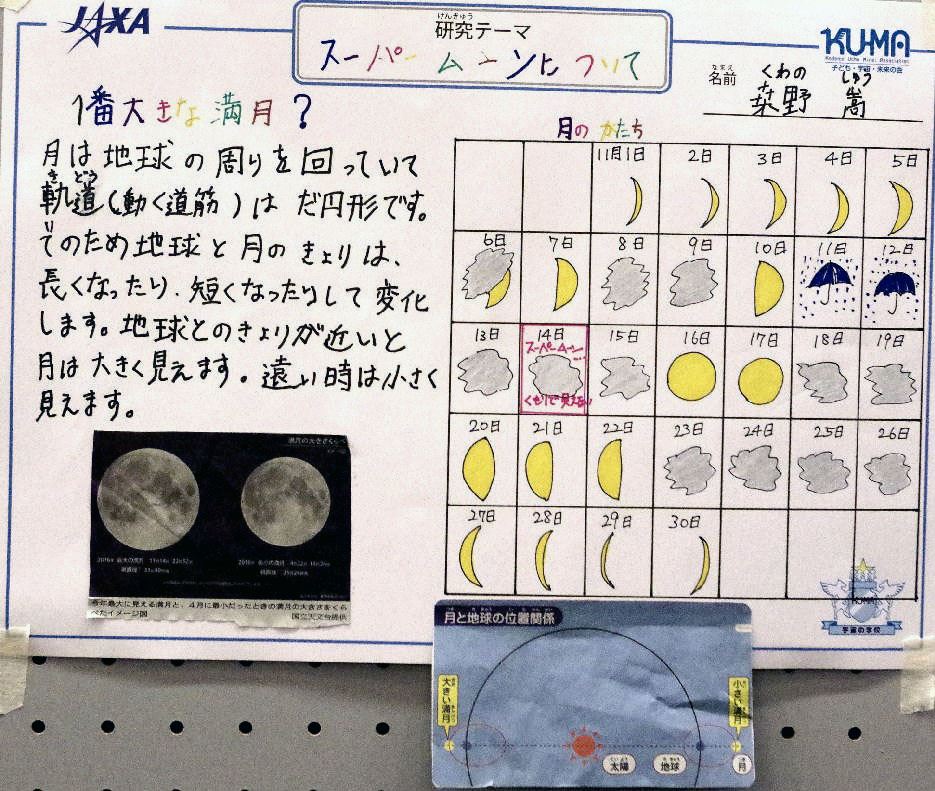 JAXA
けんきゅう
研究テーマ
スーパームーンについて
KU-MA
子ども・宇宙・未来の会
なまえ
名前
くわの しゅう
桒野 嵩
1番大きな満月?
月は地球の周りを回っていて
きどう
軌道(動く道筋)は だ円形です。
そのため地球と月のきょりは、
長くなったり、短くなったりして変化
します。地球とのきょりが近いと
月は大きく見えます。遠い時は小さく
見えます。
月の かたち
11月1日 2日 3日 4日 5日
6日 7日 8日 9日 10日 11日 12日
13日 14日 15日 16日 17日 18日 19日
スーパームーン
くもりで見えない
20日 21日 22日 23日 24日 25日 26日
27日 28日 29日 30日
満月の大きさくらべ
2016年 最大の満月 11月14日 22時52分
2016年 最小の満月 4月22日 14時24分
今年最大に見える満月と、4月に最小だったときの満月の大きさをくら
べたイメージ図
国立天文台提供
KUMA
宇宙の学校
月と地球の位置関係
大きい満月
小さい満月
太陽
地球
月